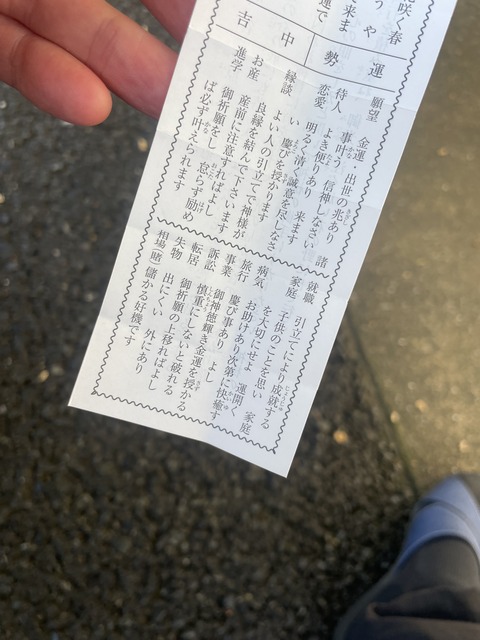 咲く春
うや
来ま
運で
運勢
中吉
願望 金運・出世の兆あり 諸
事叶う 信神しなさい
待人 よき便りあり 来ます
恋愛 明るく清く誠意を尽しなさ
い 慶びを授かります
縁談 よい人の引立てで神様が
良縁を結んで下さいます
お産 産前に注意すればよし
進学 御祈願をし 怠らず励め
ば必ず叶えられます
就職 引立てにより成就する
家庭 子供のことを思い 家庭
を大切にせよ 運開く
病気 お助けあり次第に快癒す
旅行 慶び事あり よし
事業 御神徳輝き金運を授かる
訴訟 慎重にしないと破れる
転居 御祈願の上移ればよし
失物 出にくい 外にあり
相場(賭) 儲かる好機です